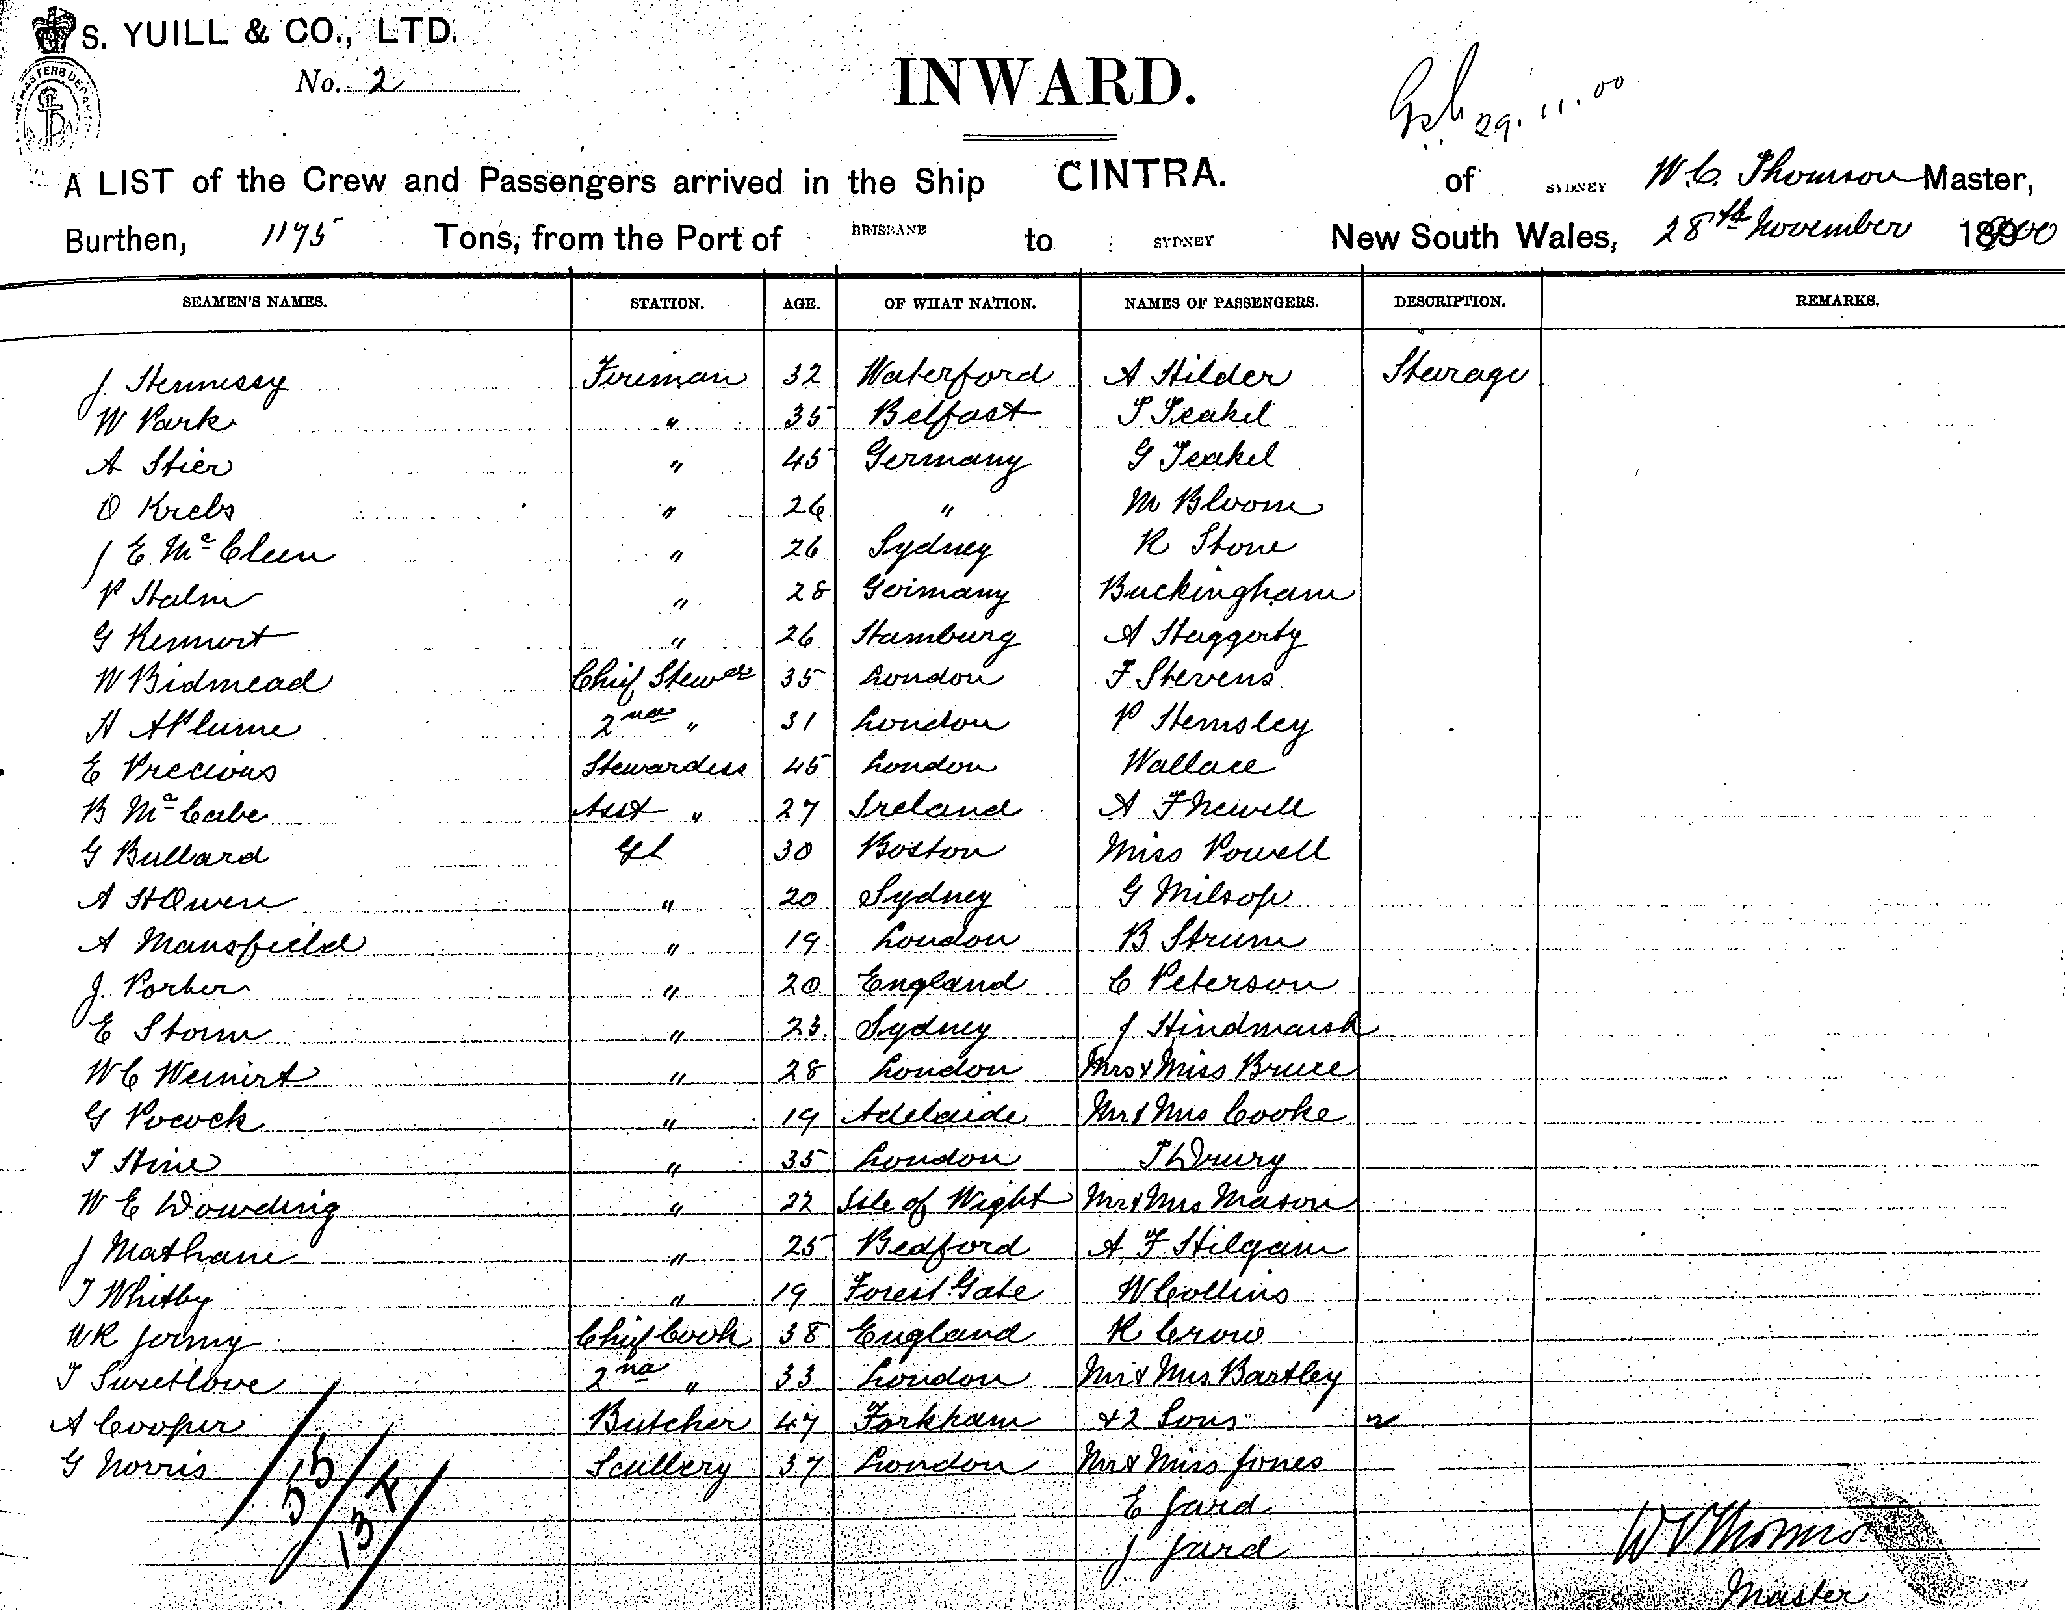 S. YUILL & CO., LTD.
No. 2
INWARD.
29.11.00
A LIST of the Crew and Passengers arrived in the Ship CINTRA. of SYDNEY W. C. Thomson Master,
Burthen, 1175 Tons, from the Port of BRISBANE to SYDNEY New South Wales, 28th November 1900
SEAMEN'S NAMES. STATION. AGE. OF WHAT NATION. NAMES OF PASSENGERS. DESCRIPTION. REMARKS.
J Hennessy Fireman 32 Waterford A Hilder Steerage
W Park " 35 Belfast T Teakel
A Stier " 45 Germany G Teakel
O Krebs " 26 " M Bloom
J E McCleen " 26 Sydney R Stone
P Halm " 28 Germany Buckingham
G Kennort " 26 Hamburg A Haggerty
W Bidmead Chief Stewd 35 London F Stevens
H A Plume 2nd " 31 London P Hemsley
E Precious Stewardess 45 London Wallace
B McCabe Asst " 27 Ireland A F Newell
G Bullard 30 Boston Miss Powell
A H Owen " 20 Sydney G Milsop
A Mansfield " 19 London B Strum
J. Porter " 20 England C Peterson
E Storm " 23 Sydney J Hindmarsh
W C Weinert " 28 London Mrs & Miss Bruce
G Pocock " 19 Adelaide Mr & Mrs Cooke
T Hine " 35 London T Drury
W E Dowding " 22 Isle of Wight Mr & Mrs Mason
J Mathane " 25 Bedford A F Hilgam
T Whitby " 19 Forest Gate W Collins
W R Jermy Chief Cook 38 England R Crow
T Sweetlove 2nd " 33 London Mr & Mrs Bartley
A Cooper Butcher 47 Forkham & 2 Sons "
G Norris Scullery 37 London Mr & Miss Jones
55 E Jard
134 J Jard
W C Thomson
Master